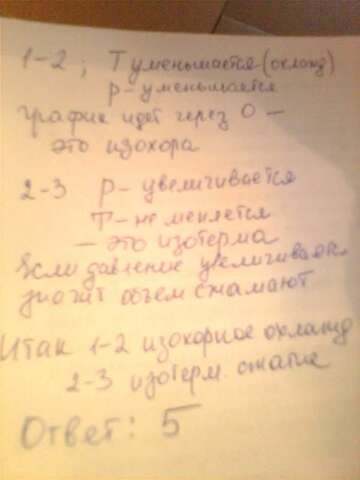 1-2; T уменьшается (охлажд)
р - уменьшается
График идет через 0 -
это изохора
2-3 р - увеличивается
T - не меняется
- это изотерма
Если давление увеличивает.
значит объем сжимают
Итак 1-2 изохорное охлажд
2-3 изотерм. сжатие
Ответ: 5